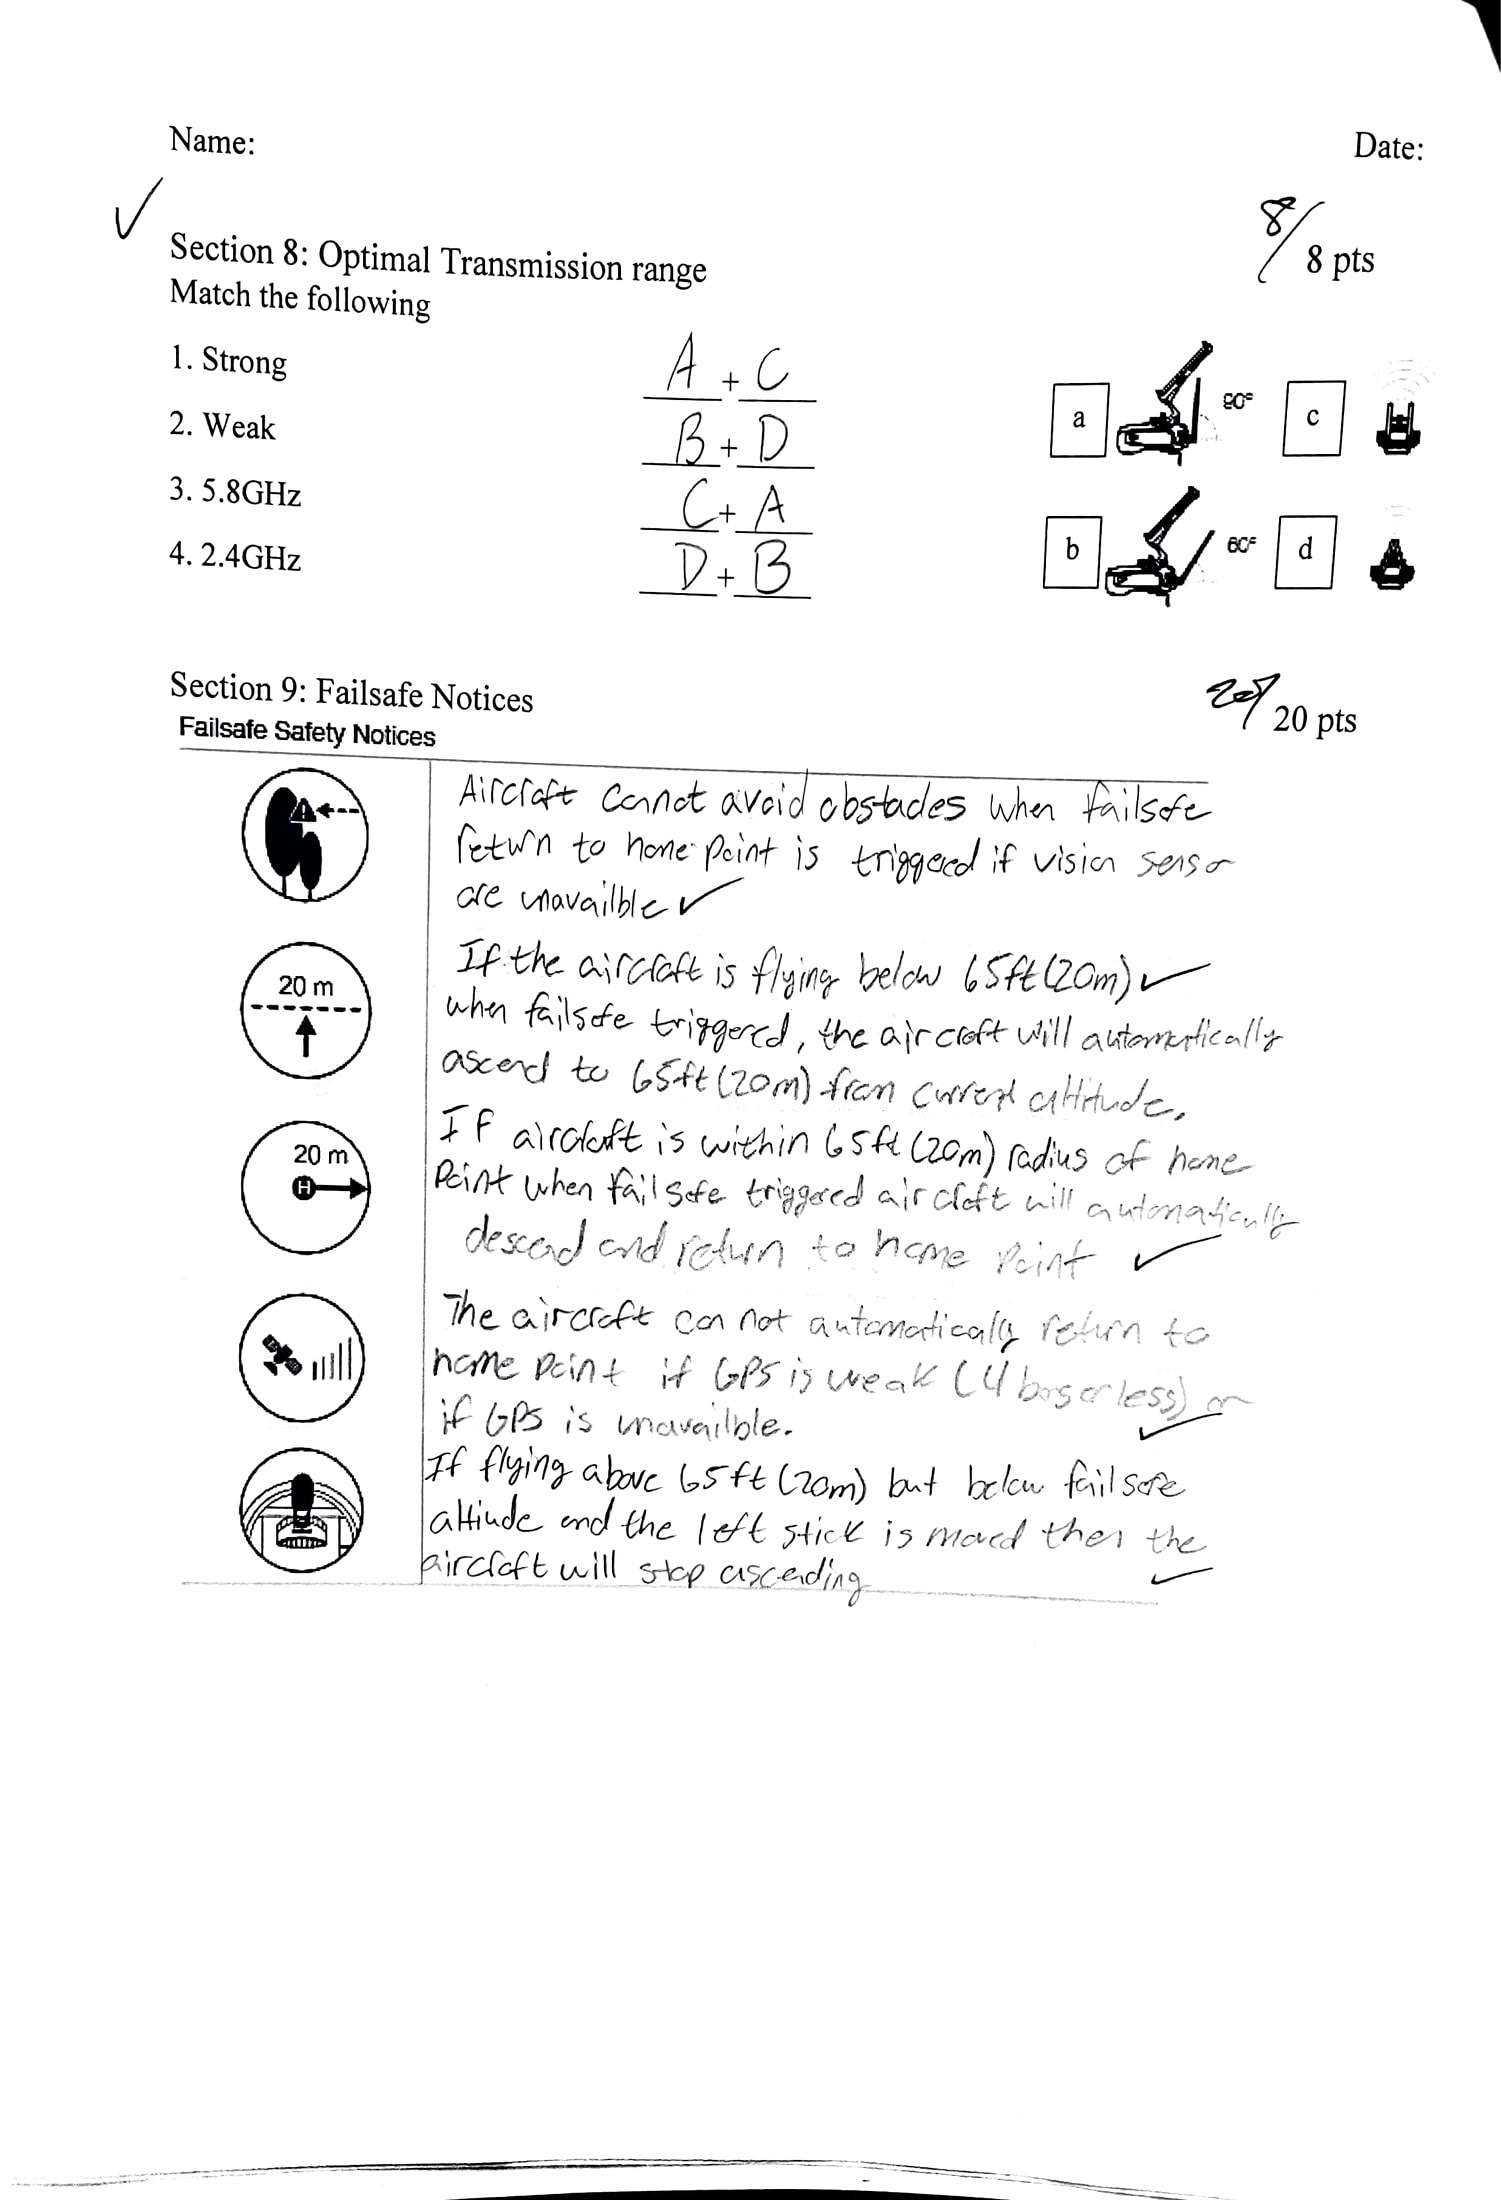 Name:
Date:
8/
8 pts
Section 8: Optimal Transmission range
Match the following
1. Strong
A + C
2. Weak
B + D
3. 5.8GHz
C + A
4. 2.4GHz
D + B
a
90°
c
b
60°
d
Section 9: Failsafe Notices
20/
20 pts
Failsafe Safety Notices
Aircraft cannot avoid obstacles when failsafe
return to home point is triggered if vision sensor
are unavailble
20 m
If the aircraft is flying below 65ft (20m)
when failsafe triggered, the aircraft will automatically
ascend to 65ft (20m) from current altitude.
20 m
H
If aircraft is within 65ft (20m) radius of home
Point when failsafe triggered aircraft will automatically
descend and return to home point
The aircraft can not automatically return to
home point if GPS is weak (4 bars or less) or
if GPS is unavailble.
If flying above 65ft (20m) but below failsafe
altiude and the left stick is moved then the
aircraft will stop ascending